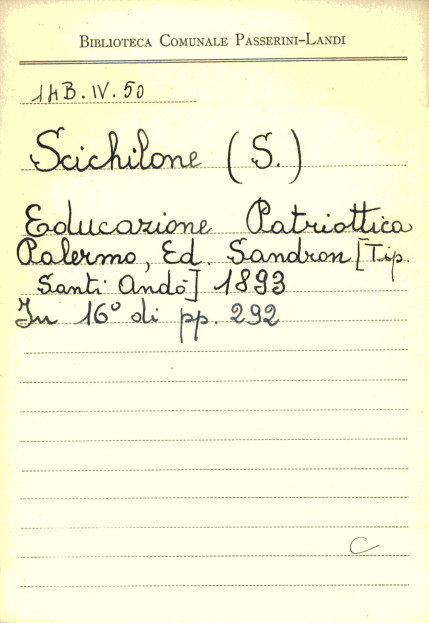 BIBLIOTECA COMUNALE PASSERINI-LANDI
14B.IV.50
Scichilone (S.)
Educazione Patriottica
Palermo, Ed. Sandron [Tip.
Santi Andò] 1893
In 16° di pp. 292
C